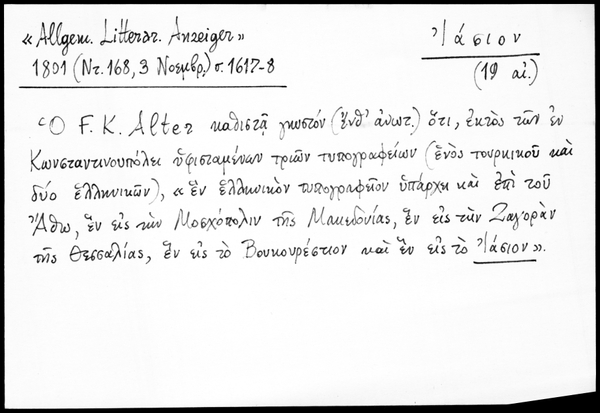 « Allgem. Litterar. Anzeiger»
1801 (Nr. 168, 3 Νοεμβρ.) σ. 1617-8
Ἰάσιον
(19 αἰ.)
Ὁ F. K. Alter καθιστᾷ γνωστόν (ἔνθ' ἀνωτ.) ὅτι, ἐκτὸς τῶν ἐν
Κωνσταντινουπόλει ὑφισταμένων τριῶν τυπογραφείων (ἑνὸς τουρκικοῦ καὶ
δύο ἑλληνικῶν), « ἓν ἑλληνικὸν τυπογραφεῖον ὑπάρχει καὶ ἐπὶ τοῦ
Ἄθω, ἓν εἰς τὴν Μοσχόπολιν τῆς Μακεδονίας, ἓν εἰς τὴν Ζαγορὰν
τῆς Θεσσαλίας, ἓν εἰς τὸ Βουκουρέστιον καὶ ἓν εἰς τὸ Ἰάσιον».